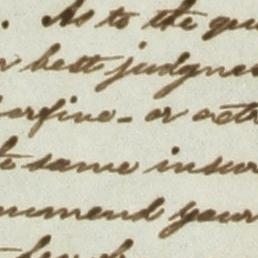 . As to the qu
best judgme
erfine - or extr
same insur
mmend your